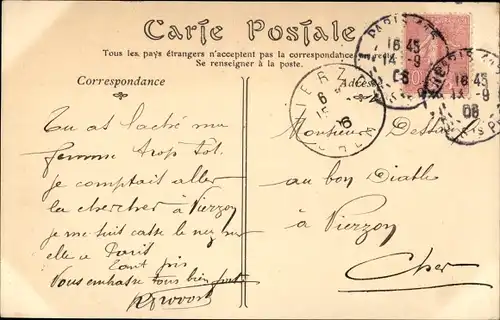 Carte Postale
Tous les pays étrangers n'acceptent pas la correspondance
Se renseigner à la poste.
Correspondance
Adresse
Tu as laché ma
femme trop tot.
je comptait aller
la chercher à Vierzon
je me suis cassé le nez
elle a Paris
Tant pis
Vous embrasse tous bien fort
Monsieur
au bon Diable
à Vierzon
Cher
PARIS
16 45
14 - 9
06
VIERZON
6
CHER
16 45
- 9
06